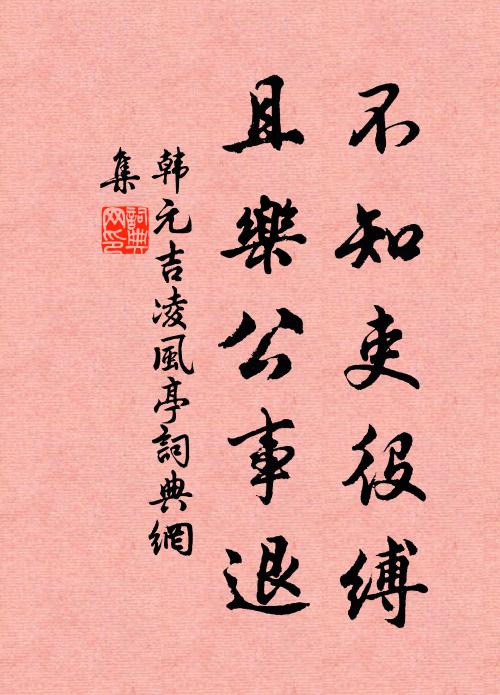 不知吏役縛
且樂公事退
韩元吉凌風亭詞典網
集
詞典網印